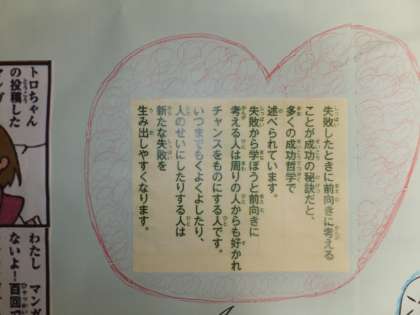 失敗したときに前向きに考える
ことが成功の秘訣だと、
多くの成功哲学で
述べられています。
失敗から学ぼうと前向きに
考える人は周りの人からも好かれ
チャンスをものにする人です。
いつまでもくよくよしたり、
人のせいにしたりする人は
新たな失敗を
生み出しやすくなります。
トロちゃん
の投稿した
マンガ
わたし マンガ
ないよ!百回